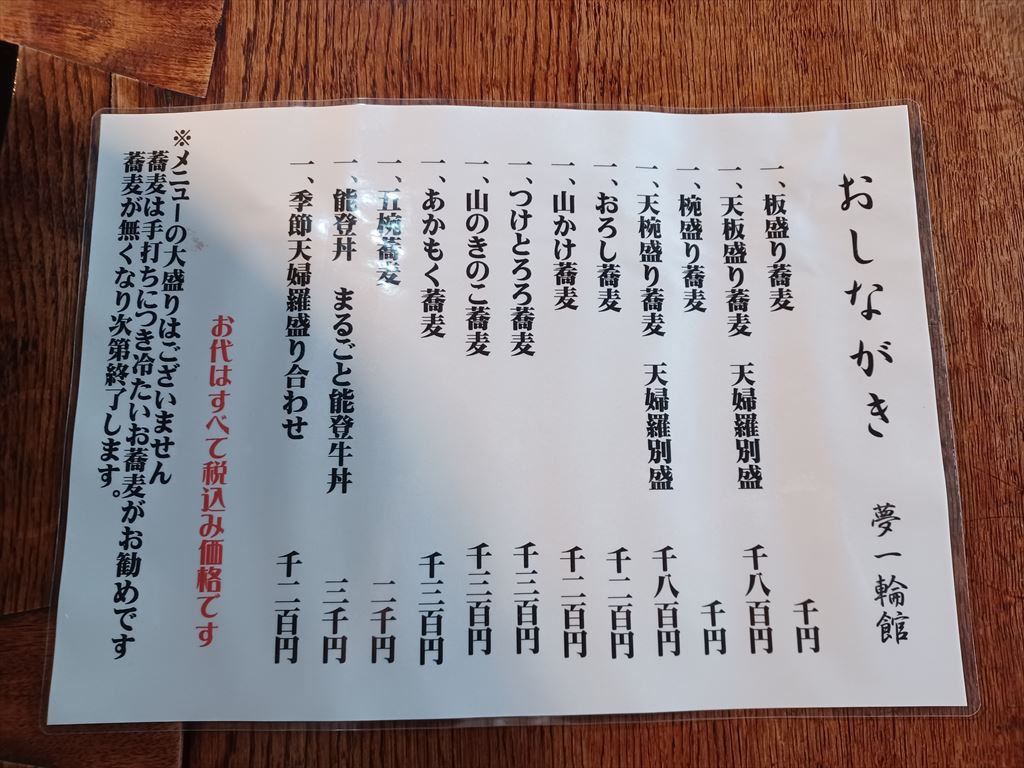 おしながき 夢一輪館
一、板盛り蕎麦 千円
一、天板盛り蕎麦 天婦羅別盛 千八百円
一、椀盛り蕎麦 千円
一、天椀盛り蕎麦 天婦羅別盛 千八百円
一、おろし蕎麦 千二百円
一、山かけ蕎麦 千二百円
一、つけとろろ蕎麦 千三百円
一、山のきのこ蕎麦 千三百円
一、あかもく蕎麦 千三百円
一、五椀蕎麦 二千円
一、能登丼 まるごと能登牛丼 三千円
一、季節天婦羅盛り合わせ 千二百円
お代はすべて税込み価格です
※メニューの大盛りはございません
蕎麦は手打ちにつき冷たいお蕎麦がお勧めです
蕎麦が無くなり次第終了します。